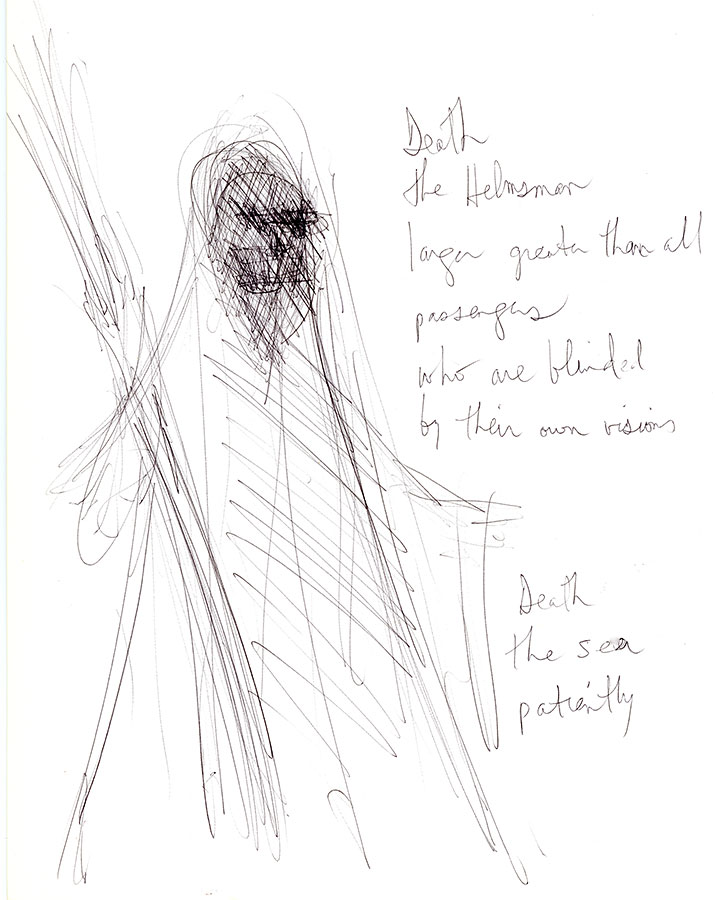 Death
the Helmsman
larger greater than all
passengers
who are blinded
by their own visions
Death
the sea
patiently